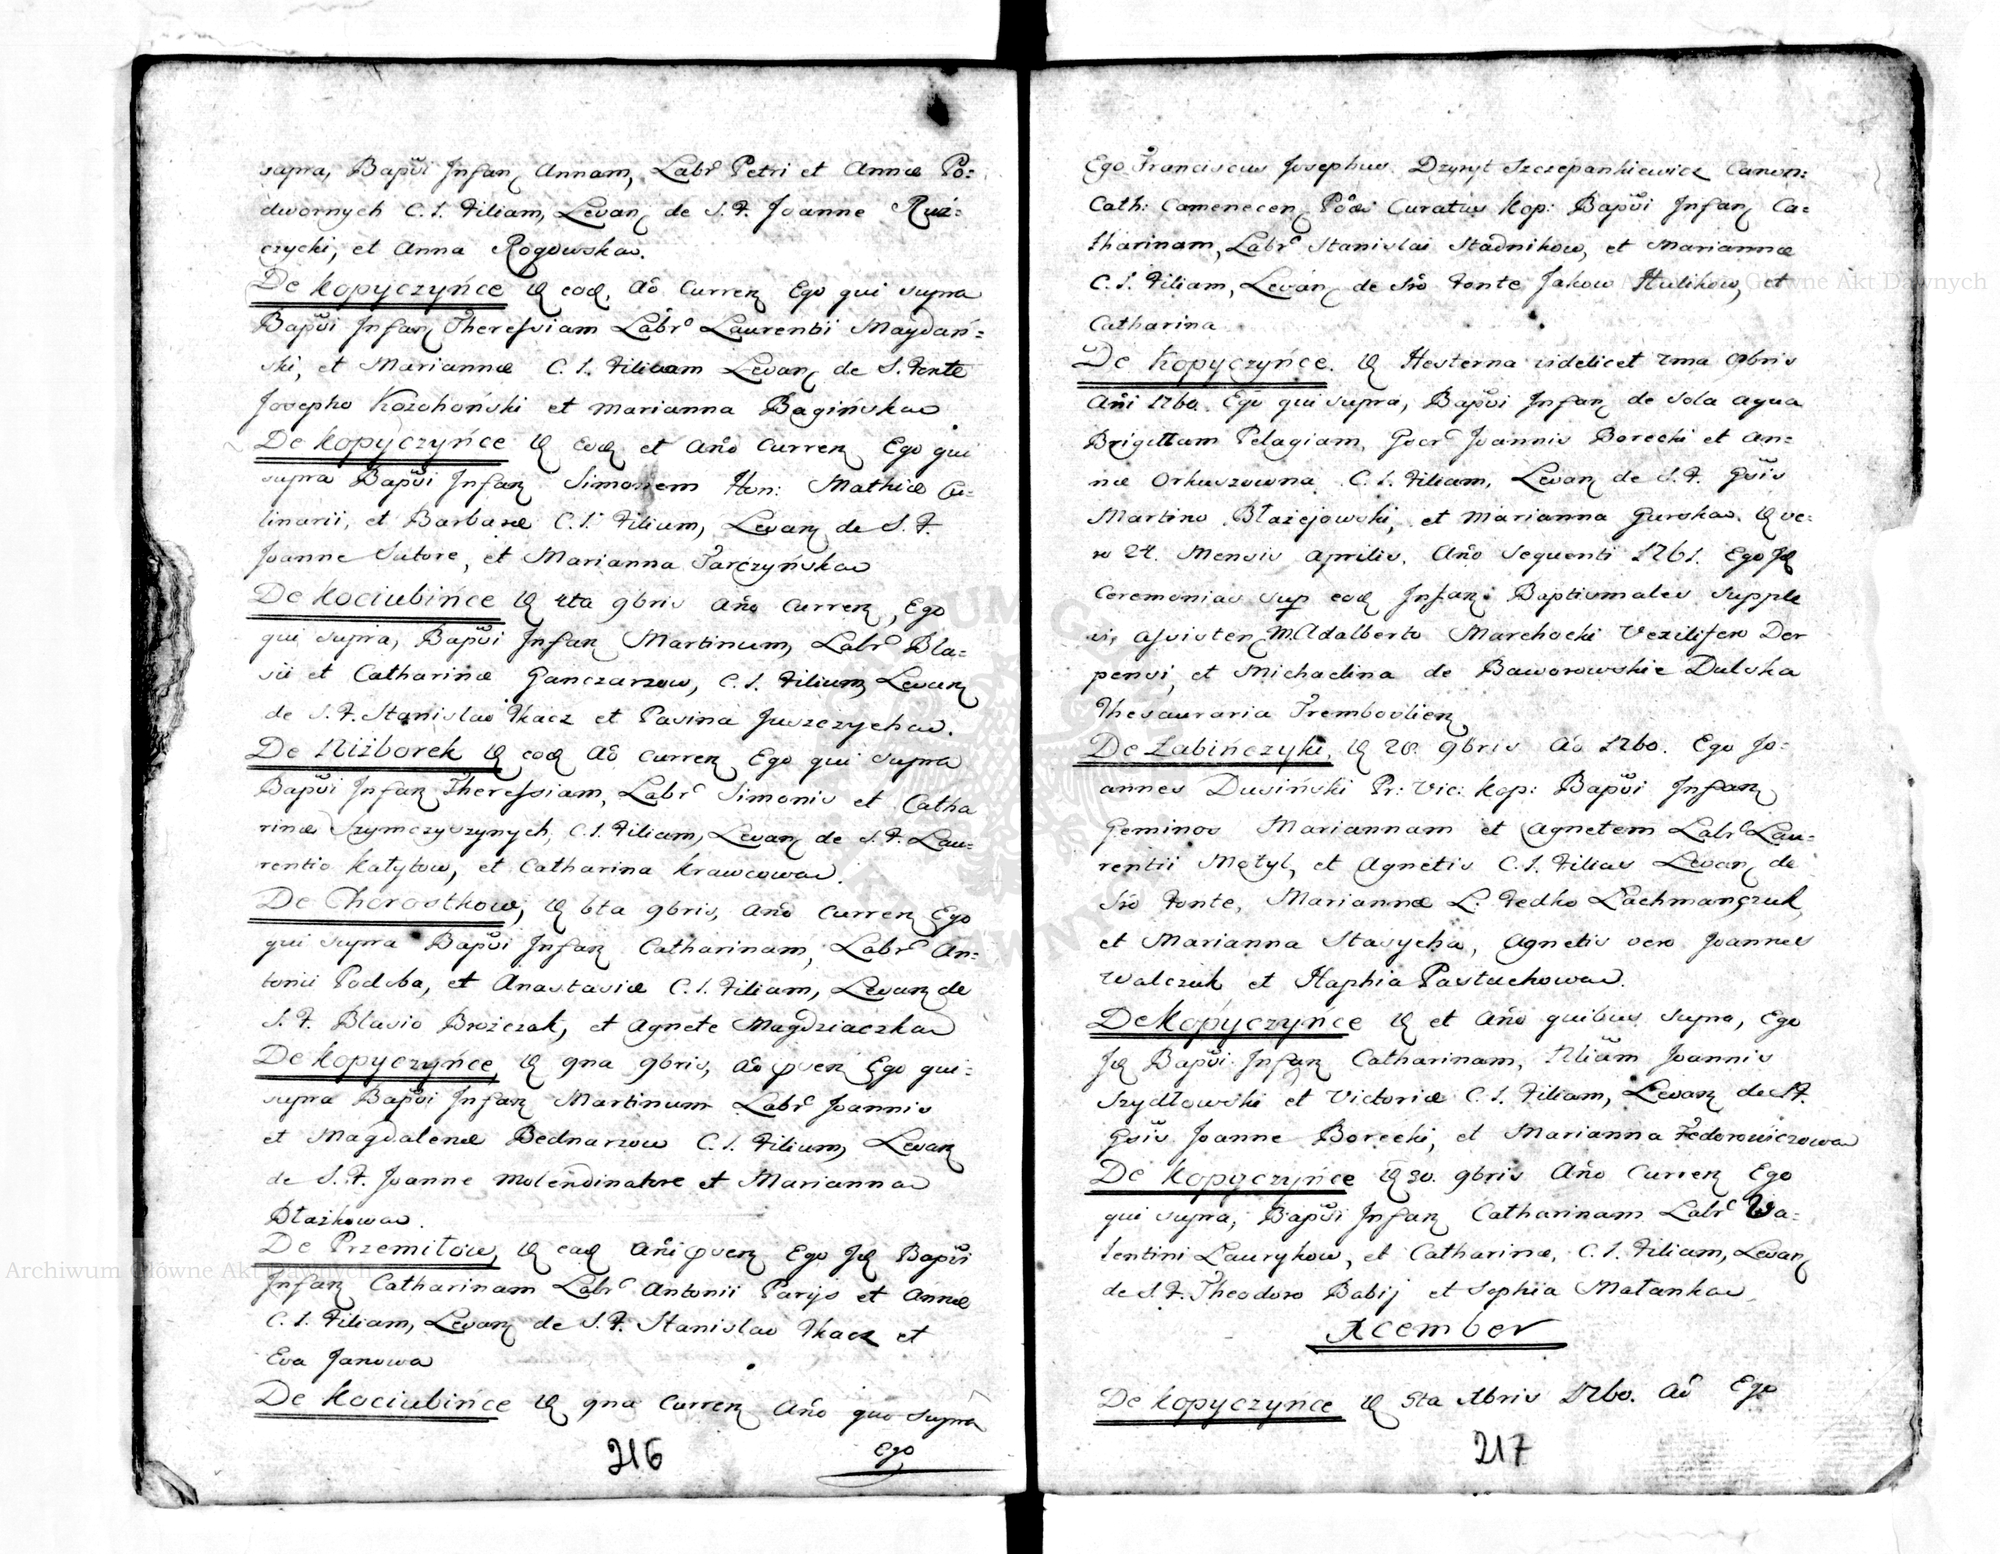 supra, Bapŭi Infan Annam, Labr Petri et Annæ Po:
dwornych C. L. Filiam, Levan de S. F. Joanne Ruż:
czycki, et Anna Rogowska.
De Kopyczyńce D eod, Aô Curren Ego qui supra
Bapŭi Infan Theressiam Labr Laurentii Magdań:
ski, et Mariannæ C. L. Filiam Levan de S. Fonte
Josepho Kozohoński et Marianna Bagińska
De Kopyczyńce D eod et Año Curren Ego qui
supra Bapŭi Infan Simonem Hon: Mathiæ Cu:
linarii, et Barbaræ C. L. Filium, Levan de S. F.
Joanne Sutore, et Marianna Tarczyńska
De Kociubińce D 4ta 9bris Año Curren, Ego
qui supra, Bapŭi Infan Martinum, Labr Bla:
sii et Catharinæ Ganczarzow, C. L. Filium Levan
de S. F. Stanislao Tkacz et Pasina Juszczycha.
De Niżborek D eod Aô Curren Ego qui supra
Bapŭi Infan Theressiam, Labr Simonis et Catha
rinæ Szymczyszynych, C. L. Filiam, Levan de S. F. Lau:
rentio Katytow, et Catharina Krawcowa.
De Chorostkow, D 6ta 9bris, Año Curren Ego
qui supra Bapŭi Infan Catharinam, Labr An:
tonii Podoba, et Anastasiæ C. L. Filiam, Levan de
S. F. Blasio Brożczak, et Agnete Magdziaczka
De Kopyczyńce, D 9na 9bris, Aô quen Ego qui:
supra Bapŭi Infan Martinum Labr Joannis
et Magdalenæ Bednarzow C. L. Filium, Levan
de S. F. Joanne Molendinatore et Marianna
Błażkowa.
De Przemiłow, D ead Añi quen Ego Id Bapŭi
Infan Catharinam Labr Antonii Parijs et Annæ
C. L. Filiam, Levan de S. F. Stanislao Tkacz et
Eva Janowa
De Kociubińce D 9na Curren Año quo supra
Ego
216
Ego Franciscus Josephus Dzyryt Szczepankiewicz Canon:
Cath: Camenecen Curatus Kop: Bapŭi Infan Ca:
tharinam, Labr Stanislai Stadnikow, et Mariannæ
C. L. Filiam, Levan de Sto Fonte Jakow Hulikow, et
Catharina
De Kopyczyńce. D Hesterna videlicet 2ma 9bris
Añi 1760. Ego qui supra, Bapŭi Infan de sola aqua
Brigittam Pelagiam, Gocr Joannis Borecki et An:
næ Orkuszowna C. L. Filiam, Levan de S. F. Gsis
Martino Błażejowski, et Marianna Gurska. D ve:
ro 24. Mensis Aprilis, Año Sequenti 1761. Ego Id
Ceremonias sup eod Infan Baptismales supple
vi, assisten M. Adalberto Marchocki Vexilifero Der
pensi, et Michaelina de Baworowskie Dulska
Thesauraria Trembovlien
De Łabińczyki, D 28. 9bris Aô 1760. Ego Jo:
annes Dusiński Pr: Vic: Kop: Bapŭi Infan
Geminos Mariannam et Agnetem Labr Lau:
rentii Motyl, et Agnetis C. L. Filias Levan de
Sto Fonte, Mariannæ L. Fedko Lachmańczuk,
et Marianna Stasycha, Agnetis vero Joannes
Walczuk et Haphia Pastuchowa.
De Kopyczyńce D et Año quibus supra, Ego
Id Bapŭi Infan Catharinam, Filiam Joannis
Szydłowski et Victoriæ C. L. Filiam, Levan de S. F.
Gsis Joanne Borecki, et Marianna Fedorowiczowa
De Kopyczyńce D 30. 9bris Año Curren Ego
qui supra, Bapŭi Infan Catharinam Labr Va:
lentini Laurykow, et Catharinæ, C. L. Filiam, Levan
de S. F. Theodoro Babij et Sophia Małanka
Xcember
De Kopyczyńce D 5ta Xbris 1760. Aô Ego
217
Archiwum Główne Akt Dawnych
Archiwum Główne Akt Dawnych